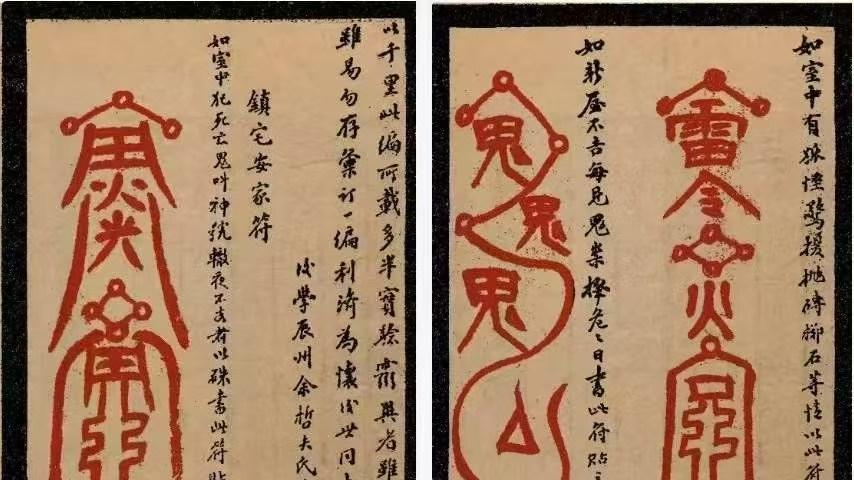 以千里此編所載多半實驗
雖易勿存彙訂一編利濟為懷
後學辰州余哲夫氏
鎮宅安家符
如室中犯死亡鬼叫神號轍夜不安者以硃書此符貼
如室中有狐怪驚擾拋磚擲石等情以此符
雷令
火
如新屋不吉每見鬼祟擇危危日書此符貼
鬼
鬼
鬼